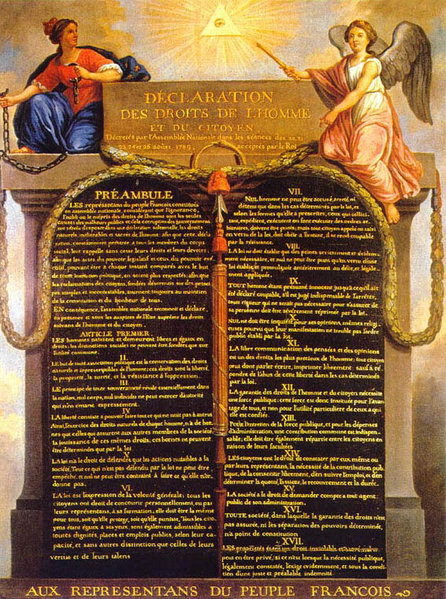 DÉCLARATION
DES DROITS DE L'HOMME
ET DU CITOYEN,
Décrétés par l'Assemblée Nationale dans les séances des 20, 21
23, 24 et 26 août 1789, acceptés par le Roi
PRÉAMBULE
LES représentans du peuple François, constitués
en assemblée nationale, considérant que l'ignorance,
l'oubli ou le mépris des droits de l'homme sont les seules
causes des malheurs publics et de la corruption des gouvernemens
ont résolu d'exposer dans une déclaration solemnelle, les droits
naturels, inaliénables et sacrés de l'homme; afin que cette décla-
ration, constamment présente à tous les membres du corps
social, leur rappelle sans cesse leurs droits et leurs devoirs;
afin que les actes du pouvoir législatif et ceux du pouvoir exé-
cutif, pouvant être à chaque instant comparés avec le but
de toute institution politique, en soient plus respectés; afin que
les réclamations des citoyens, fondées désormais sur des prin-
cipes simples et incontestables, tournent toujours au maintien
de la constitution et du bonheur de tous.
EN conséquence, l'assemblée nationale reconnoit et déclare,
en présence et sous les auspices de l'Être suprême les droits
suivans de l'homme et du citoyen.
ARTICLE PREMIER.
LES hommes naissent et demeurent libres et égaux en
droits; les distinctions sociales ne peuvent être fondées que sur
l'utilité commune.
II.
LE but de toute association politique est la conservation des droits
naturels et imprescriptibles de l'homme; ces droits sont la liberté,
la propriété, la sureté, et la résistance à l'oppression.
III.
LE principe de toute souveraineté réside essentiellement dans
la nation, nul corps, nul individu ne peut exercer d'autorité
qui n'en émane expressément.
IV.
LA liberté consiste à pouvoir faire tout ce qui ne nuit pas à autrui
Ainsi, l'exercice des droits naturels de chaque homme, n'a de bor-
nes que celles qui assurent aux autres membres de la société
la jouissance de ces mêmes droits; ces bornes ne peuvent
être déterminées que par la loi
V.
LA loi n'a le droit de défendre que les actions nuisibles à la
société. Tout ce qui n'est pas défendu par la loi ne peut être
empêché, et nul ne peut être contraint à faire ce qu'elle n'or-
donne pas.
VI.
LA loi est l'expression de la volonté générale; tous les
citoyens ont droit de concourir personnellement, ou par
leurs représentans, à sa formation; elle doit être la même
pour tous, soit qu'elle protege, soit qu'elle punisse. TOUS les ci-
toyens étant égaux à ses yeux, sont également admissibles à
toutes dignités, places et emplois publics, selon leur ca-
pacité, et sans autres distinction que celles de leurs
vertus et de leurs talens.
VII.
NUL homme ne peut être accusé, arrêté ni
détenu que dans les cas déterminés par la loi, et
selon les formes qu'elle a prescrites, ceux qui sollici-
tent, expédient, exécutent ou font exécuter des ordres ar-
bitraires, doivent être punis; mais tout citoyen appelé ou saisi
en vertu de la loi, doit obéir à l'instant, il se rend coupable
par la résistance.
VIII.
LA loi ne doit établir que des peines strictement et évidem-
ment nécessaire, et nul ne peut être puni qu'en vertu d'une
loi établie et promulguée antérieurement au délit, et légale-
ment appliquée.
IX.
TOUT homme étant présumé innocent jusqu'à ce qu'il ait
été déclaré coupable, s'il est jugé indispensable de l'arrêter,
toute rigueur qui ne seroit pas nécessaire pour s'assurer de
sa personne doit être sévèrement réprimée par la loi.
X.
NUL ne doit être inquiété pour ses opinions, mêmes reli-
gieuses pourvu que leur manifestation ne trouble pas l'ordre
public établi par la loi.
XI.
LA libre communication des pensées et des opinions
est un des droits les plus précieux de l'homme; tout citoyen
peut donc parler, écrire, imprimer librement; sauf à ré-
pondre de l'abus de cette liberté dans les cas déterminés
par la loi.
XII.
LA garantie des droits de l'homme et du citoyen nécessite
une force publique; cette force est donc instituée pour l'avan-
tage de tous, et non pour l'utilité particuliere de ceux à qui
elle est confiée.
XIII.
POUR l'entretien de la force publique, et pour les dépenses
d'administration, une contribution commune est indispen-
sable; elle doit être également répartie entre les citoyens en
raison de leurs facultés.
XIV.
LES citoyens ont le droit de constater par eux même ou
par leurs représentans, la nécessité de la contribution pub-
lique, de la consentir librement, d'en suivre l'emploi, et d'en
déterminer la quotité, l'assiette, le recouvrement et la durée.
XV.
LA société a le droit de demander compte à tout agent
public de son administration.
XVI.
TOUTE société, dans laquelle la garantie des droits n'est
pas assurée, ni la séparation des pouvoirs déterminée,
n'a point de constitution
XVII.
LES propriétés étant un droit inviolable et sacré, nul ne
peut en être privé, si ce n'est lorsque la nécessité publique,
légalement constatée, l'exige évidemment, et sous la condi-
tion d'une juste et préalable indemnité.
AUX REPRESENTANS DU PEUPLE FRANCOIS